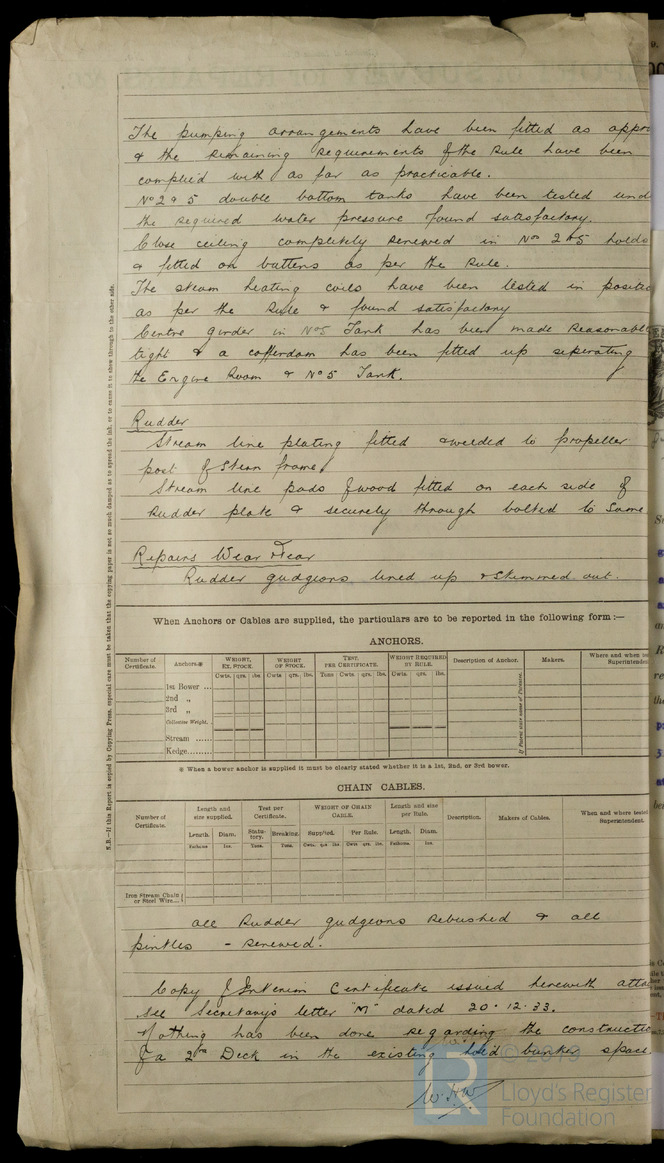 The pumping arrangements have been fitted as appro
& the remaining requirements of the Rule have been
complied with as far as practicable.
Nº 2 & 5 double bottom tanks have been tested und
the required water pressure found satisfactory.
Close ceiling completely renewed in Nos 2 & 5 holds
& fitted on battens as per the Rule.
The steam heating coils have been tested in positio
as per the Rule & found satisfactory
Centre girder in Nº5 Tank has been made reasonabl
tight & a cofferdam has been fitted up seperating
the Engine Room & Nº 5 Tank.
Rudder
Stream line plating fitted & welded to propeller
post of Stern frame.
Stream line pads of wood fitted on each side of
Rudder plate & securely through bolted to same
Repairs Wear & Tear
Rudder gudgeons lined up & skimmed out.
N.B.—If this Report is copied by Copying Press, especial care must be taken that the copying paper is not so much damped as to spread the ink, or to cause it to show through to the other side.
When Anchors or Cables are supplied, the particulars are to be reported in the following form :—
ANCHORS.
Number of Certificate. Anchors.* WEIGHT, EX. STOCK. WEIGHT OF STOCK. TEST, PER CERTIFICATE. WEIGHT REQUIRED BY RULE. Description of Anchor. Makers. Where and when
Superintenden
Cwts. qrs. lbs. Cwts. qrs. lbs. Tons Cwts. qrs. lbs. Cwts. qrs. lbs.
1st Bower ...
2nd „
3rd „
Collective Weight.
Stream ......
Kedge.........
If Patent state name of Patentee.
* When a bower anchor is supplied it must be clearly stated whether it is a 1st, 2nd, or 3rd bower.
CHAIN CABLES.
Number of Certificate. Length and size supplied. Test per Certificate. WEIGHT OF CHAIN CABLE. Length and size per Rule. Description. Makers of Cables. When and where tested
Superintendent.
Length. Diam. Statutory. Breaking. Supplied. Per Rule. Length. Diam.
Fathoms Ins. Tons. Tons. Cwts. qrs. lbs. Cwts. qrs. lbs. Fathoms Ins.
Iron Stream Chain
or Steel Wire...
All Rudder gudgeons rebushed & all
pintles - renewed.
Copy of Interim Certificate issued herewith atta
see Secretary's letter "M" dated 20.12.33.
Nothing has been done regarding the constructio
of a 2nd Deck in the existing hold bunker space
W.H.W.
© 2019
LR
Lloyd's Register
Foundation